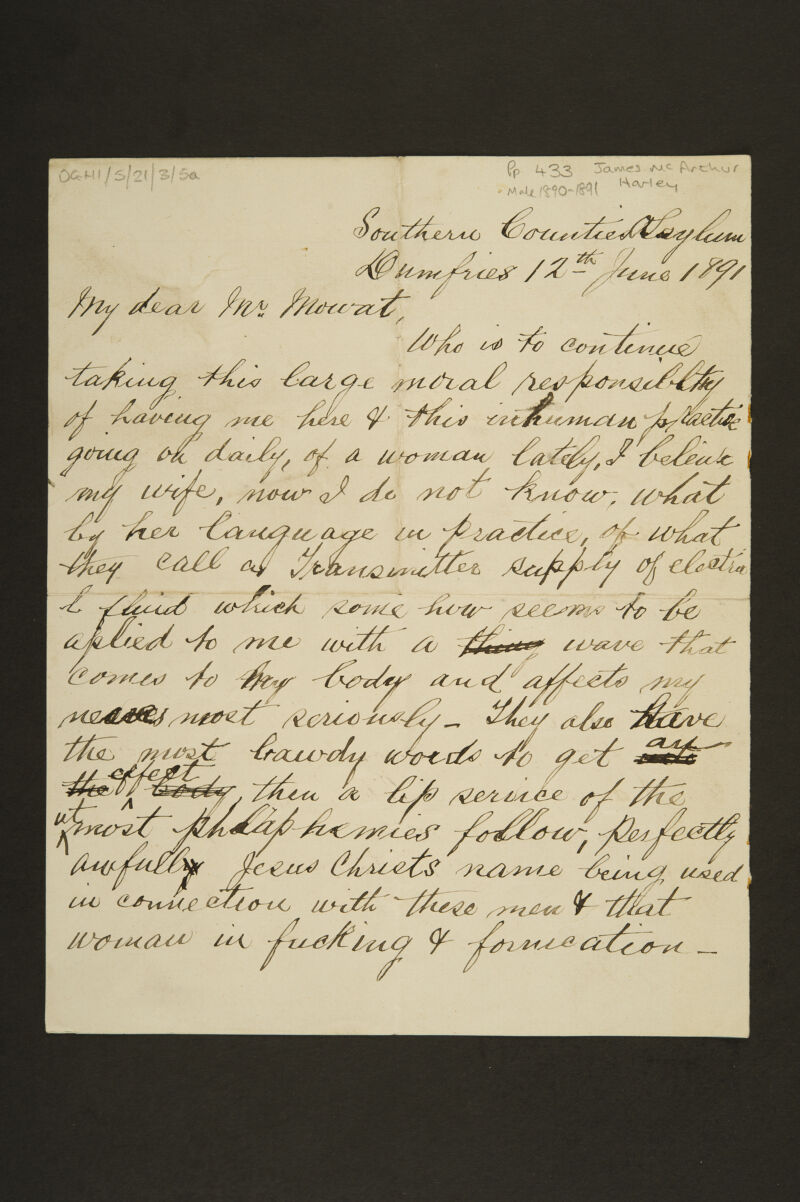 DGH1/5/21/3/5a
Pp 433 James McArthur
Male 1890-1891 Harley
Southern Counties Asylum
Dumfries 12th June 1891
My dear Mr. Mowat,
Who is to continue
taking this large moral responsiblty
of having me here & this inhuman practice
going on daily, of a woman lately, I beleive
my wife, now I do not know, what
by her language in practice, of what
they call a Transmitter supply of electri
l fluid which some how seems to be
aplied to me with a thing wave that
comes to my body and affects my
nerves most seriously - They also have
the most bawdy words to get an
effect
the body, then a lip service of the
utmost phlaphemies follow, perfectly
awfully Jesus Christs name being used
in connection with these men & that
woman in fucking & fornication -